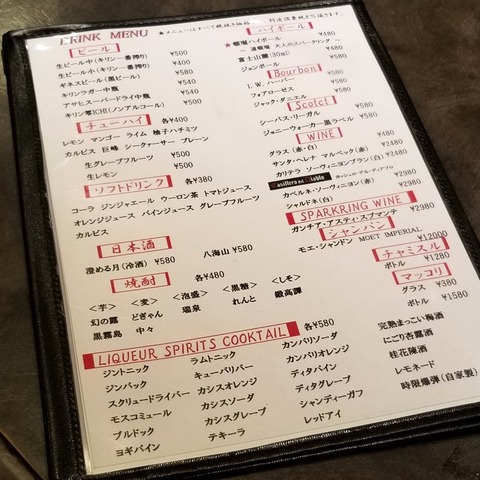 DRINK MENU
★メニューはすべて税抜き価格
別途消費税を頂きます。
ビール
生ビール中(キリン一番搾り) ¥500
生ビール小(キリン一番搾り) ¥400
ギネスビール(黒ビール) ¥580
キリンラガー中瓶 ¥540
アサヒスーパードライ中瓶 ¥540
キリン零ICHI(ノンアルコール) ¥500
チューハイ 各¥400
レモン マンゴー ライム 柚子ハチミツ
カルピス 巨峰 シークァーサー プレーン
生グレープフルーツ ¥500
生レモン ¥500
ソフトドリンク 各¥380
コーラ ジンジャエール ウーロン茶 トマトジュース
オレンジジュース パインジュース グレープフルーツ
カルピス
日本酒
澄める月(冷酒) ¥580
八海山 ¥580
焼酎 各¥480
<芋> <麦> <泡盛> <黒糖> <しそ>
幻の露 どぎゃん 瑞泉 れんと 鍛高譚
黒霧島 中々
LIQUEUR SPIRITS COOKTAIL 各¥580
ジントニック ラムトニック カンパリソーダ 完熟まっこい梅酒
ジンバック キューバリバー カンパリオレンジ にごり杏露酒
スクリュードライバー カシスオレンジ ディタパイン 桂花陳酒
モスコミュール カシスソーダ ディタグレープ レモネード
ブルドック カシスグレープ シャンディーガフ 時限爆弾(自家製)
ヨギパイン テキーラ レッドアイ
ハイボール
★角瓶ハイボール ¥480
~ 大人のスパークリング ~
富士山麓(30ml) ¥480
ジョンボール ¥480
Bourbon
I.W.ハーパー ¥580
フォアローゼス ¥580
ジャック・ダニエル ¥580
Scotch
シーバス・リーガル ¥580
ジョニーウォーカー黒ラベル ¥580
WINE
グラス(赤・白) ¥480
サンタ・ヘレナ マルベック(赤) ¥2480
カリテラ ソーヴィニヨンブラン(白) ¥2480
Casillero del Diablo カッシェロ・デル・ディアブロ
カベルネ・ソーヴィニヨン(赤) ¥2980
シャルドネ(白) ¥2980
SPARKRING WINE
ガンチア・アスティ・スプマンテ ¥2980
シャンパン
モエ・シャンドン MOET IMPERIAL ¥12000
チャミスル
ボトル ¥1280
マッコリ
グラス ¥380
ボトル ¥1580